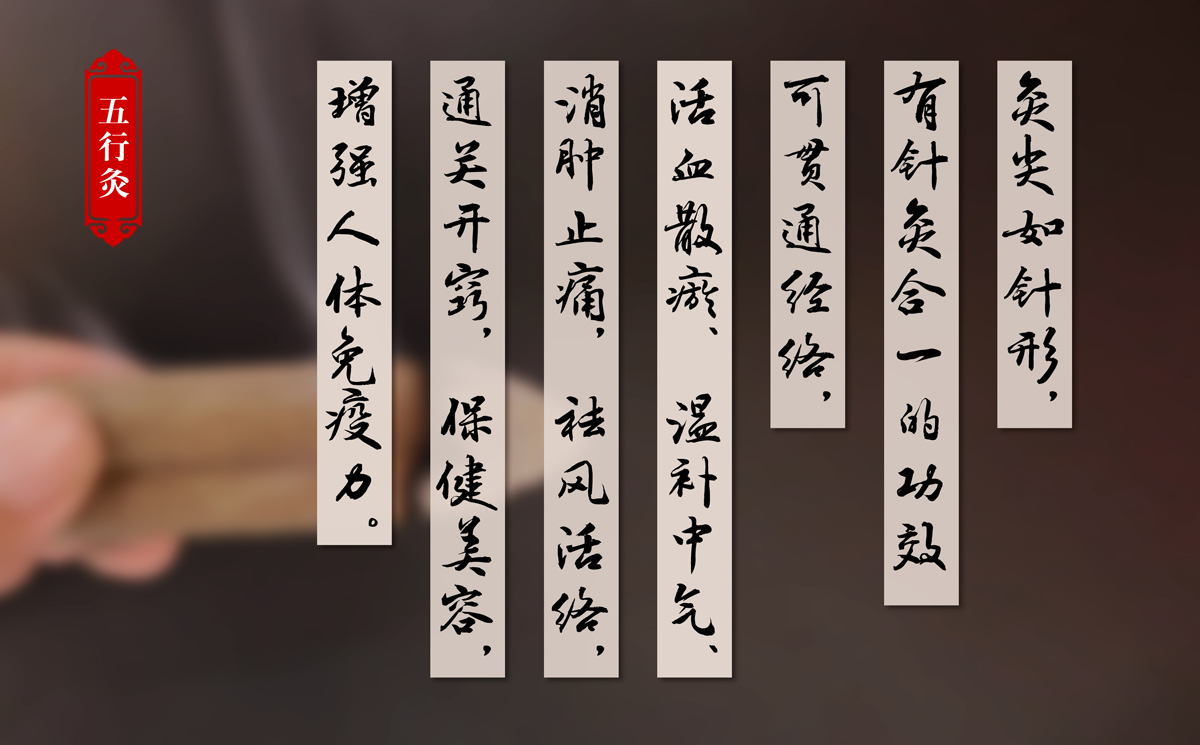 灸尖如针形，
有针灸合一的功效
可贯通经络，
活血散瘀、温补中气、
消肿止痛，祛风活络，
通关开窍，保健美容，
增强人体免疫力。
五行灸